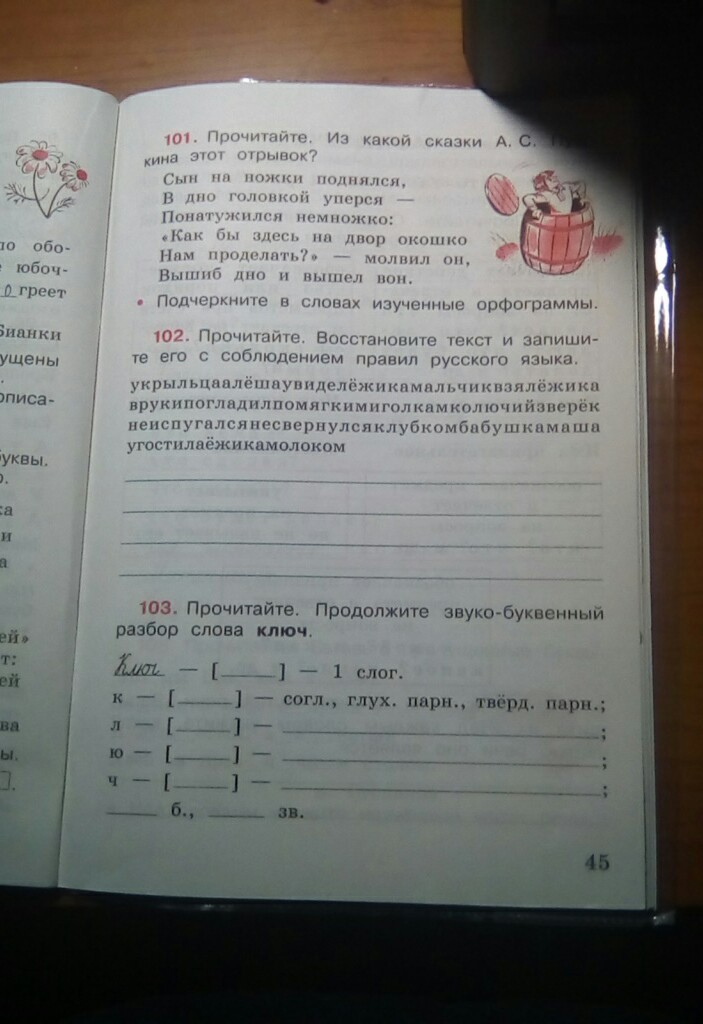 101. Прочитайте. Из какой сказки А. С.
кина этот отрывок?
Сын на ножки поднялся,
В дно головкой уперся —
Понатужился немножко:
«Как бы здесь на двор окошко
Нам проделать?» — молвил он,
Вышиб дно и вышел вон.
• Подчеркните в словах изученные орфограммы.
102. Прочитайте. Восстановите текст и запиши-
те его с соблюдением правил русского языка.
укрыльцаалёшаувиделёжикамальчиквзялёжика
врукипогладилпомягкимиголкамколючийзверёк
неиспугалсянесвернулсяклубкомбабушкамаша
угостилаёжикамолоком
103. Прочитайте. Продолжите звуко-буквенный
разбор слова ключ.
Ключ — [____] — 1 слог.
к — [____] — согл., глух. парн., твёрд. парн.;
л — [____] — ____;
ю — [____] — ____;
ч — [____] — ____;
____ б., ____ зв.
45
по обо-
юбоч-
о греет
Бианки
ущены
описа-
буквы.
ка
и
а
ей»
т:
ей
ва
ы.